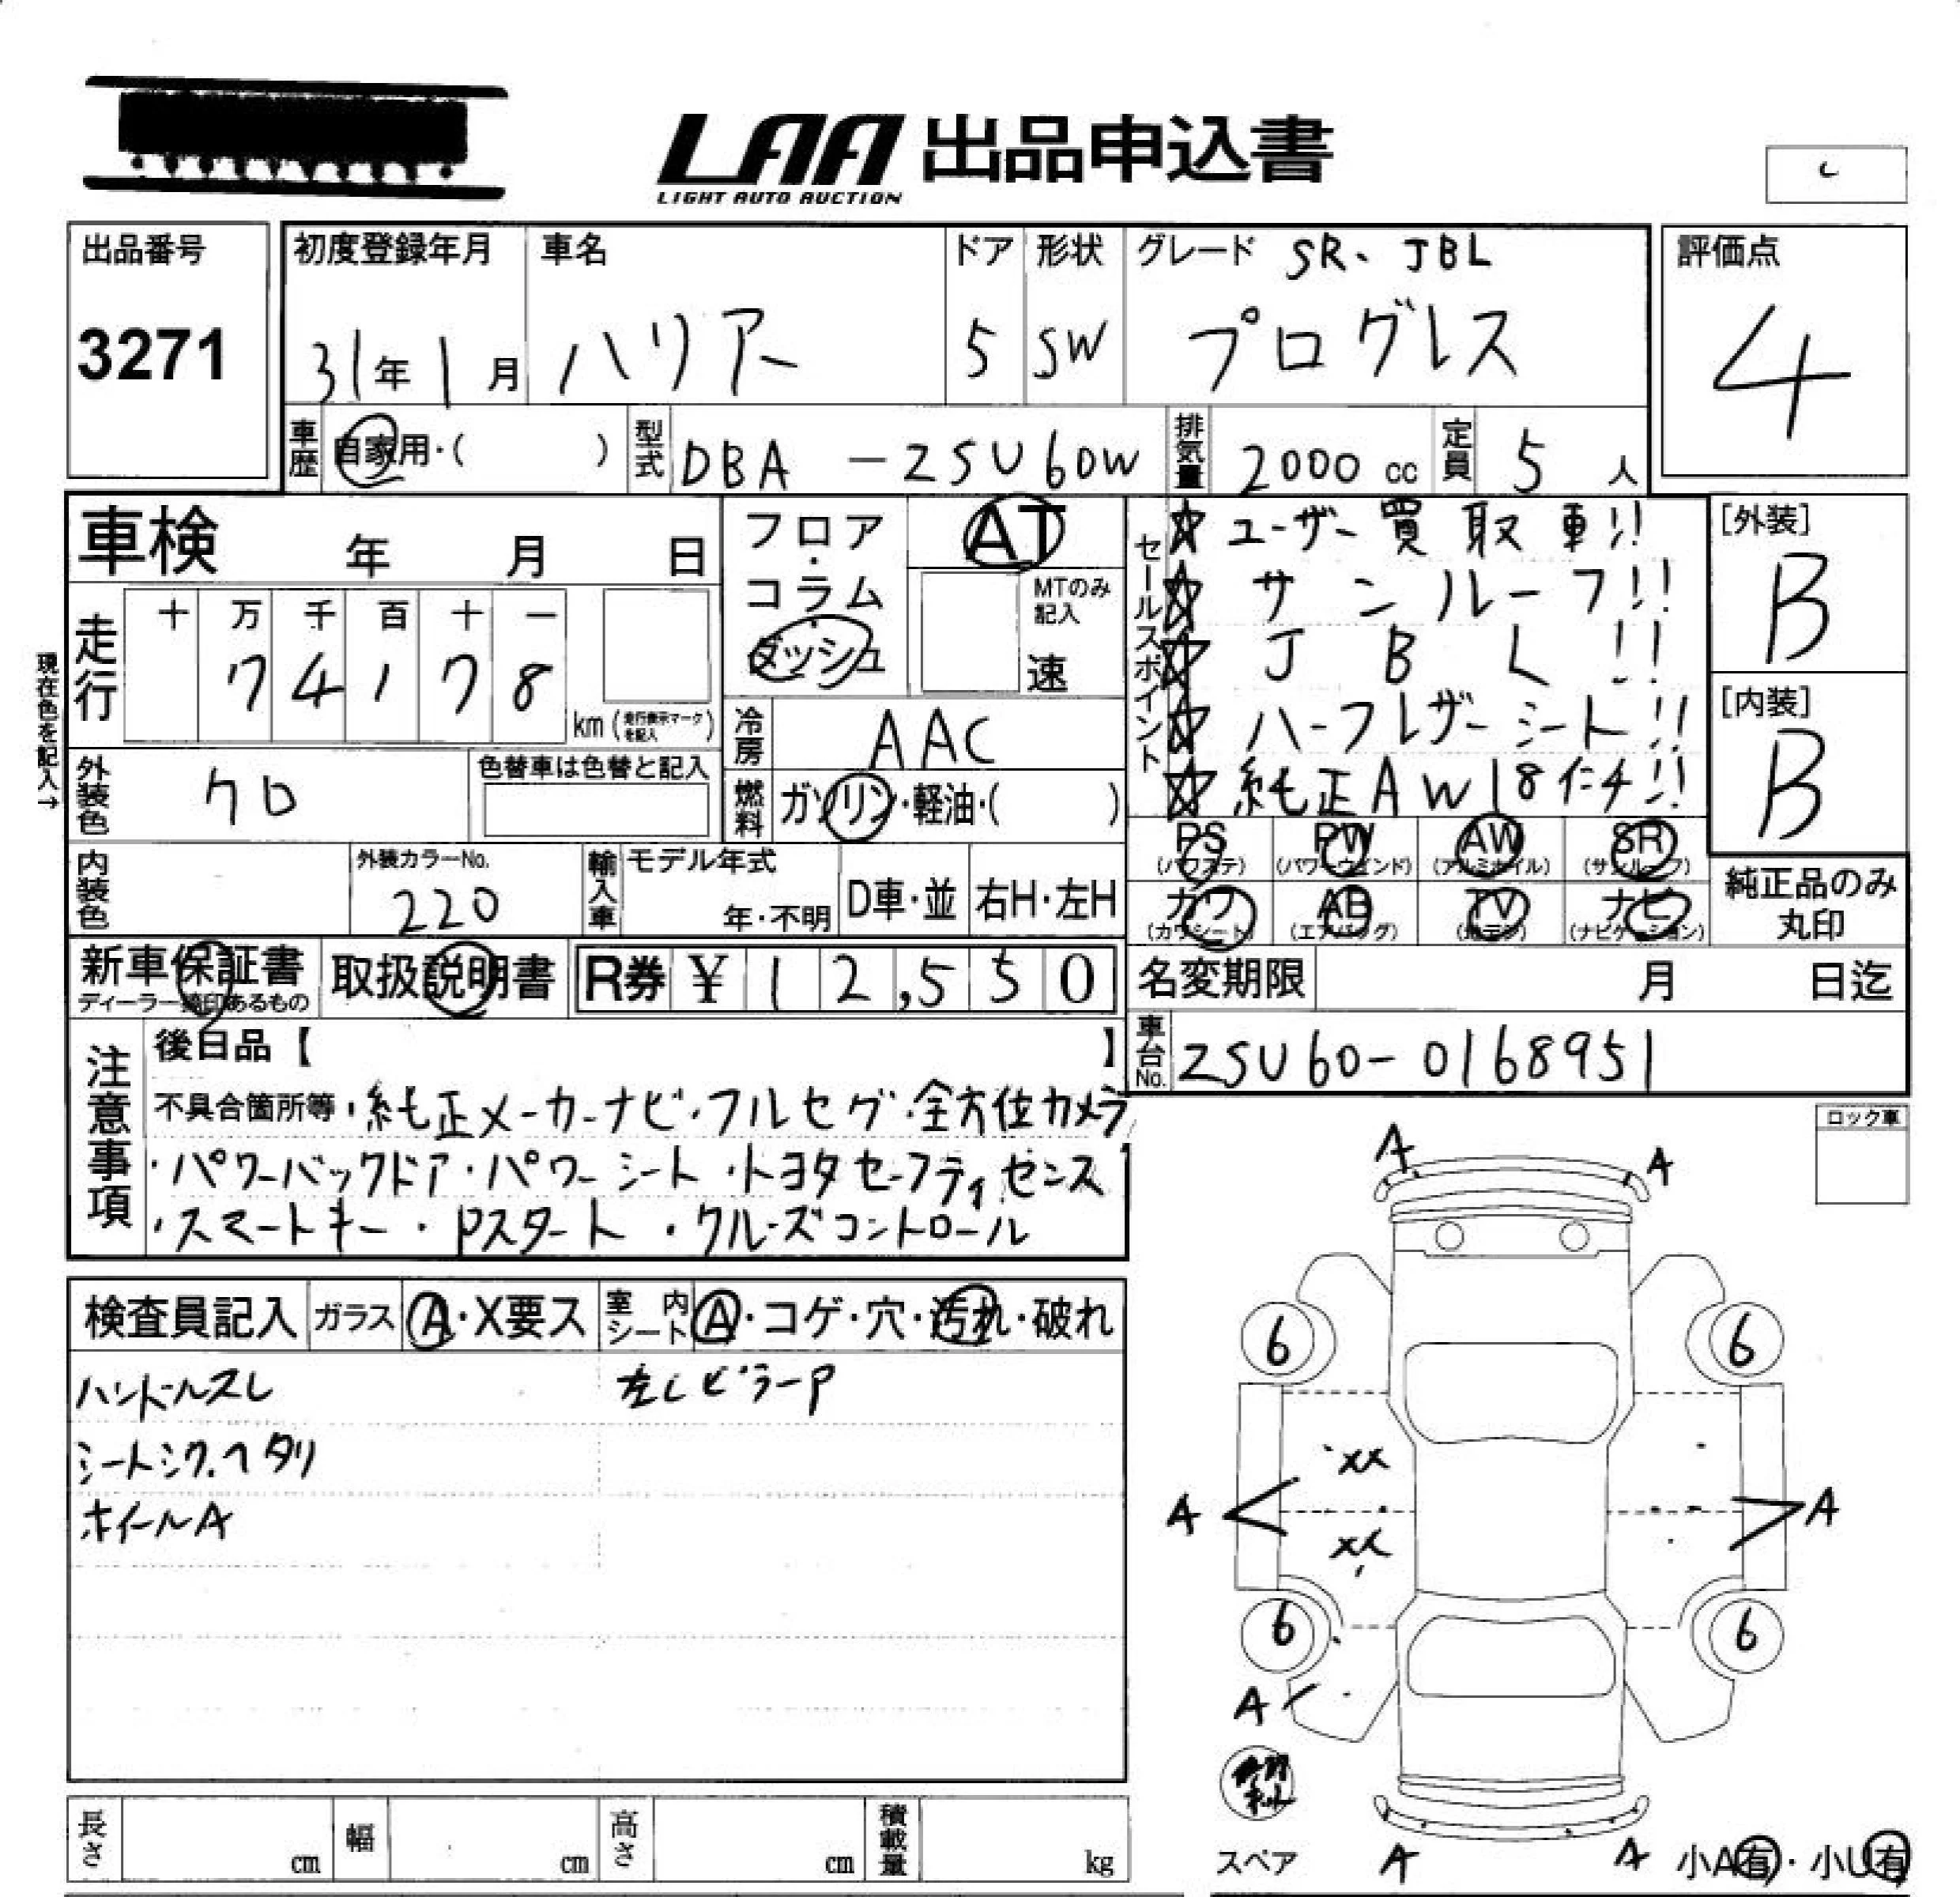 LAA 出品申込書
LIGHT AUTO AUCTION
出品番号
3271
初度登録年月
31年1月
車名
ハリアー
ドア
5
形状
SW
グレード SR、JBL
プログレス
評価点
4
車歴 自家用・( )
型式 DBA-ZSU60W
排気量 2000cc
定員 5人
車検 年 月 日
フロア・コラム・ダッシュ
AT
MTのみ記入
速
セールスポイント
☆ユーザー買取車!!
☆サンルーフ!!
☆JBL!!
☆ハーフレザーシート!!
☆純正AW18インチ!!
[外装]
B
[内装]
B
現在色を記入→
走行
十 万 千 百 十 一
7 4 1 7 8
km(走行表示マークを記入)
冷房 AAC
外装色 クロ
色替車は色替と記入
燃料 ガソリン・軽油・( )
PS (パワステ)
PW (パワーウインド)
AW (アルミホイル)
SR (サンルーフ)
カワ (カワシート)
AB (エアバッグ)
TV (地デジ)
ナビ (ナビゲーション)
純正品のみ丸印
内装色
外装カラーNo.
220
輸入車
モデル年式
年・不明
D車・並
右H・左H
新車保証書
取扱説明書
R券 ¥12,550
名変期限 月 日迄
車台No. ZSU60-0168951
注意事項
後日品【 】
不具合箇所等・純正メーカーナビ・フルセグ・全方位カメラ
・パワーバックドア・パワーシート・トヨタセーフティセンス
・スマートキー・Pスタート・クルーズコントロール
ロック車
検査員記入
ガラス A・X要ス
室内シート A・コゲ・穴・汚れ・破れ
ハンドルスレ
左CピラーP
シートシワ、ヘタリ
ホイールA
A A
6 6
XX
A A
XX
6 6
A
スペア
A A
小A有・小U有
長さ cm
幅 cm
高さ cm
積載量 kg